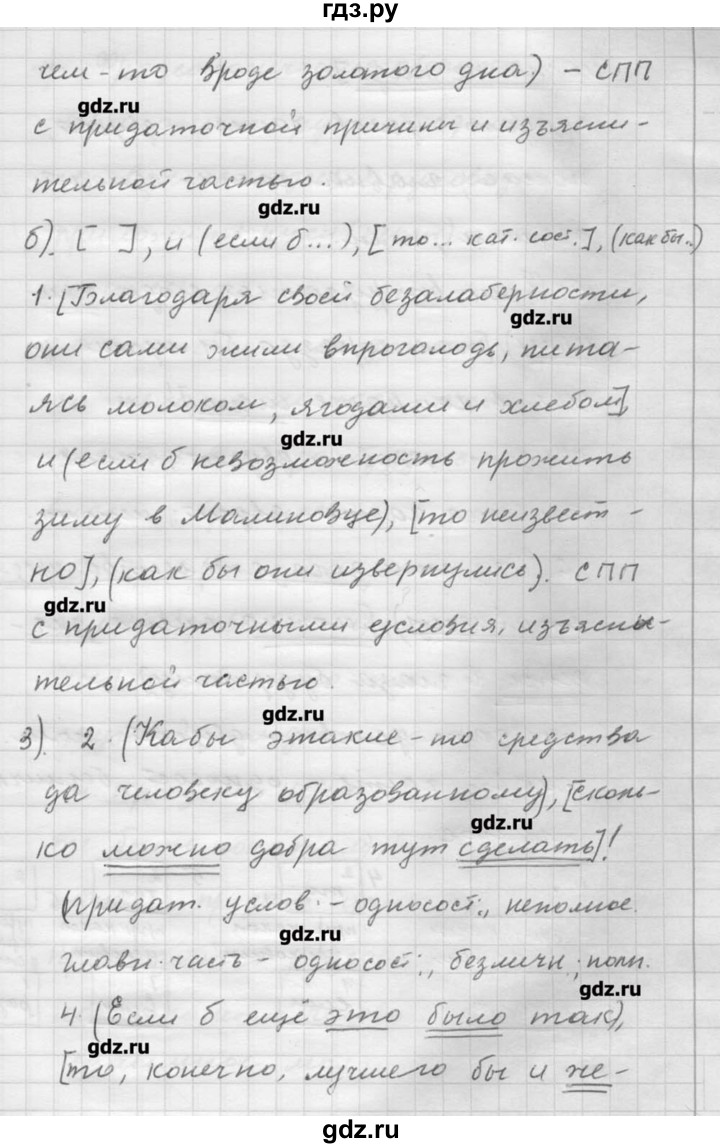 гдз.ру
чем-то вроде золотого дна) - СПП
gdz.ru
с придаточной причины и изъясни-
тельной частью.
gdz.ru
б). [ ], и (если б...), [то... кат. сост.], (как бы..)
1. [Благодаря своей безалаберности,
gdz.ru
они сами жили впроголодь, пита-
ясь молоком, ягодами и хлебом],
gdz.ru
и (если б невозможность прожить
зиму в Малиновце), [то неизвест-
но], (как бы они извернулись). СПП
gdz.ru
с придаточными условия, изъясни-
тельной частью.
gdz.ru
3). 2. (Кабы этакие-то средства
да человеку образованному), [сколь-
gdz.ru
ко можно добра тут сделать]!
(придат. услов. - односост., неполное.
gdz.ru
Главн. часть - односост., безличн., полн.
gdz.ru
4. (Если б ещё это было так),
gdz.ru
[то, конечно, лучшего бы и же-
gdz.ru